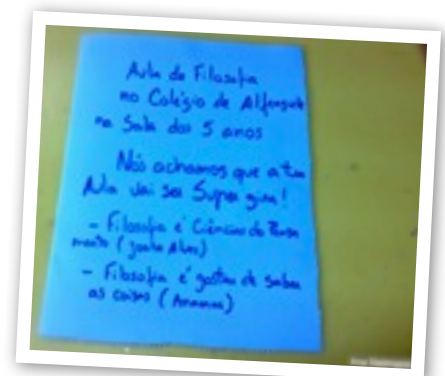 Aula de Filosofia
no Colégio de Alfragide
na Sala dos 5 anos
Nós achamos que a tua
Aula vai ser Super gira!
- Filosofia é Ciências do Pensa
mento (
- Filosofia é gostar de saber
as coisas (